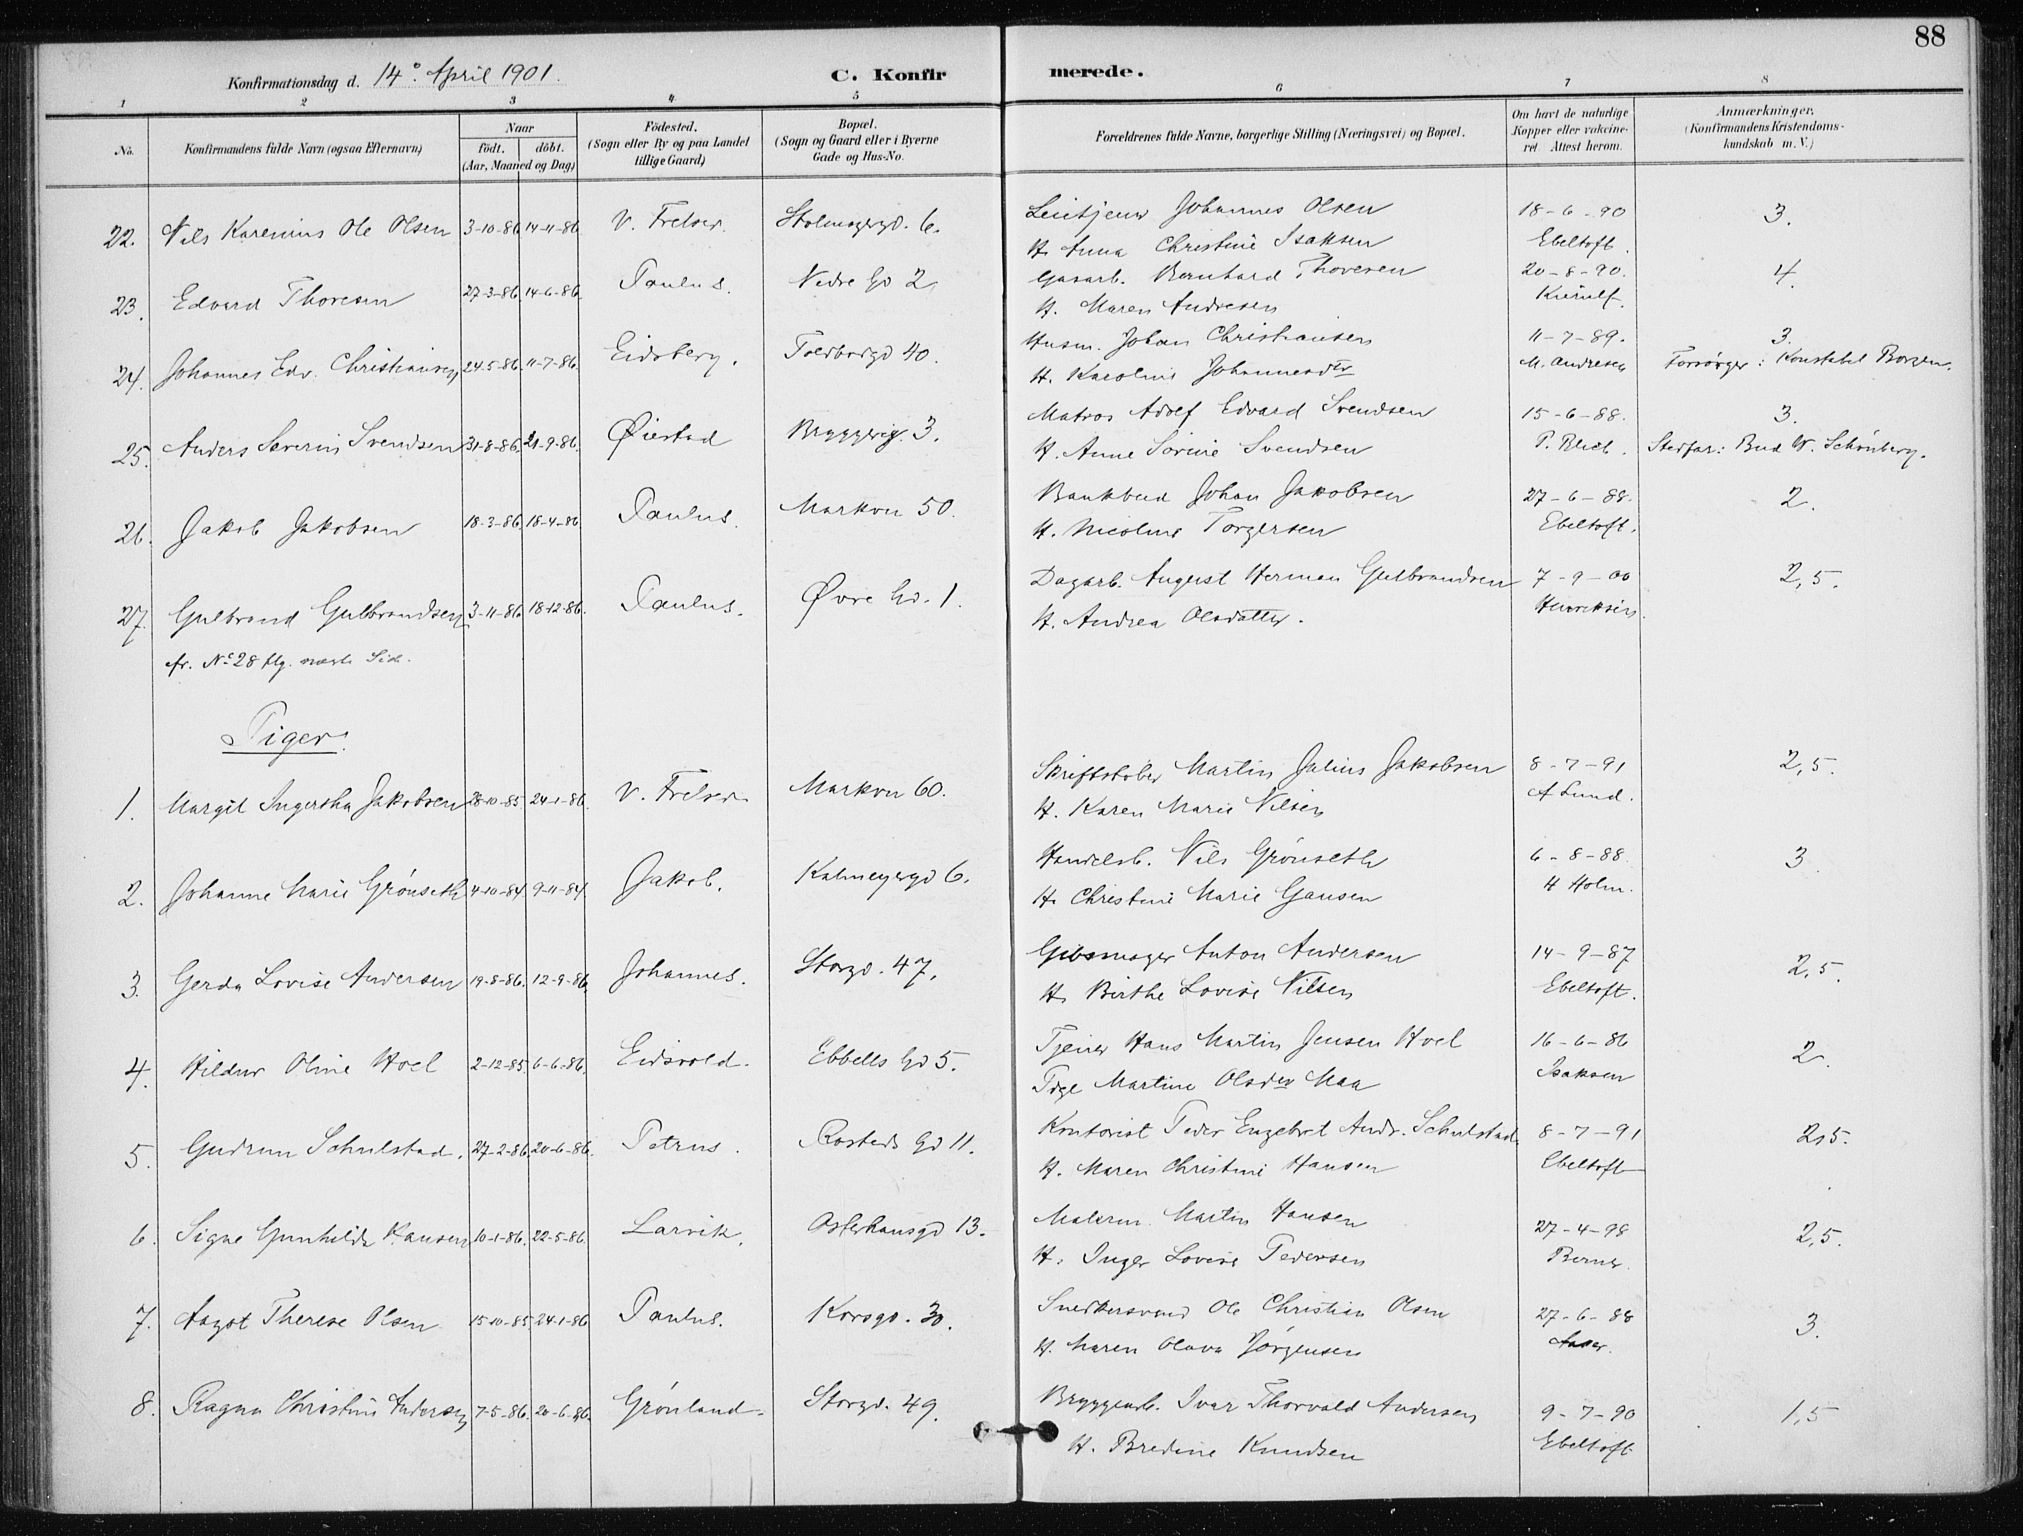 88
Konfirmationsdag d. 14de April 1901.
C. Konfirmerede.
1 2 3 4 5 6 7 8
No.
Konfirmandens fulde Navn (ogsaa Efternavn)
Naar
født. døbt.
(Aar, Maaned og Dag)
Födested.
(Sogn eller By og paa Landet
tillige Gaard)
Bopæl.
(Sogn og Gaard eller i Byerne
Gade og Hus-No.
Forældrenes fulde Navne, borgerlige Stilling (Næringsvei) og Bopæl.
Om havt de naturlige
Kopper eller vakcine-
ret Attest herom.
Anmærkninger.
(Konfirmandens Kristendoms-
kundskab m. V.)
22. Nils Karenius Ole Olsen 3-10-86 14-11-86 V. Frelser. 6. Johannes Olsen 18-6-90 3.
H. Anna Christine Isaksen Ebeltoft.
23. Edvard Thoresen 27-3-86. 14-6-86. Paulus. Nedre Gd 2 Gasarb. Bernhard Thoresen 20-8-90. 4.
H. Maren Andresen Kierulf.
24. Johannes Edv. Christiansen 24-5-86. 11-7-86. Eidsberg. Toldbodgd 40. Husm. Johan Christiansen 11-7-89. 3.
H. Karoline Johannesdtr M. Andresen Forsørger: Konstabel
25. Anders Severin Svendsen 31-8-86. 21-9-86. Øiestad Bryggerig. 3. Matros Adolf Edvard Svendsen 15-6-88. 3.
H. Anne Sorine Svendsen P. Stedfar: Bud W. Schönberg.
26. Jakob Jakobsen 18-3-86. 18-4-86. Paulus. Markvn 50. Bankbud Johan Jakobsen 27-6-88. 2.
H. Nicoline Torgersen Ebeltoft.
27. Gulbrand Gulbrandsen 3-11-86. 18-12-86. Paulus. Øvre Gd. 1. Dagarb. August Herman Gulbrandsen 7-9-00 2,5.
H. Andrea Olsdatter. Henriksen
fr. No 28 flg. næste Side.
Piger.
1. Margit Ingertha Jakobsen 28-10-85. 24-1-86. V. Frelser Markvn 60. Skriftstøber Martin Julius Jakobsen 8-7-91 2,5.
H. Karen Marie Nilsen A Lund.
2. Johanne Marie Grönseth 4-10-84. 9-11-84. Jakob. Kalmeyergd 6. Handelsb. Nils Grönseth 6-8-88. 3.
H. Christine Marie Gansen H Holm.
3. Gerda Lovise Andersen 19-8-86. 12-9-86. Johannes. Storgd. 47. Gibsmager Anton Andersen 14-9-87 2,5.
H. Birthe Lovise Nilsen Ebeltoft.
4. Hildur Oline Hoel 2-12-85. 6-6-86. Eidsvold. Ebbells Gd 5. Tjener Hans Martin Jensen Hoel 16-6-86 2.
Pige Martine Olsdtr Maa Isaksen
5. Gudrun Schulstad. 27-2-86. 20-6-86. Petrus. Rosteds Gd 11. Kontorist Peder Engebret Andr. Schulstad 8-7-91 2,5.
H. Maren Christine Hansen Ebeltoft
6. Signe Gunhilda Hansen 10-1-86. 22-5-86. Larvik. Osterhausgd 13. Malerm. Martin Hansen 27-4-98 2,5.
H. Inger Lovise Pedersen Berner.
7. Aagot Therese Olsen 15-10-85. 24-1-86. Paulus. Korsgd. 30. Snedkersvend Ole Christian Olsen 27-6-88 3.
H. Maren Olava Jørgensen
8. Ragna Christine Andersen 7-5-86. 20-6-86. Grönland. Storgd. 49. Bryggeriarb. Ivar Thorvald Andersen 9-7-90 1,5
H. Bredine Knudsen Ebeltoft